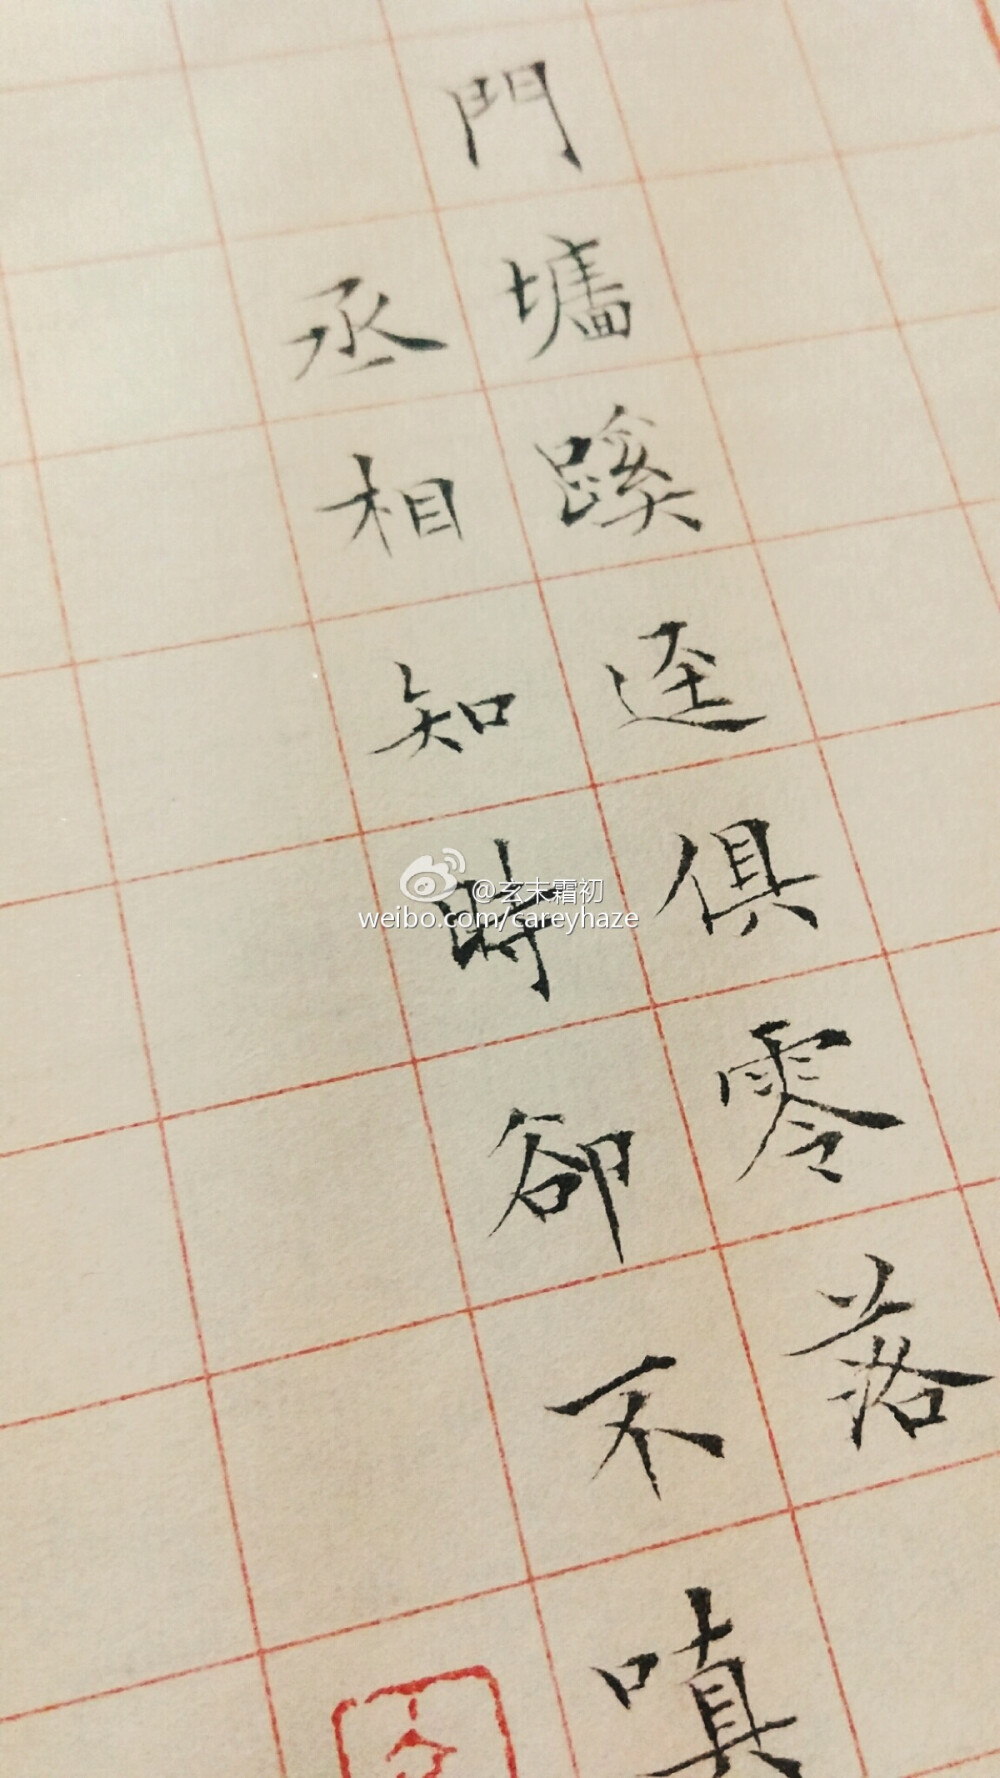 門墻蹊迳俱零落
丞相知時卻不嗔
@玄末霜初
weibo.com/careyhaze